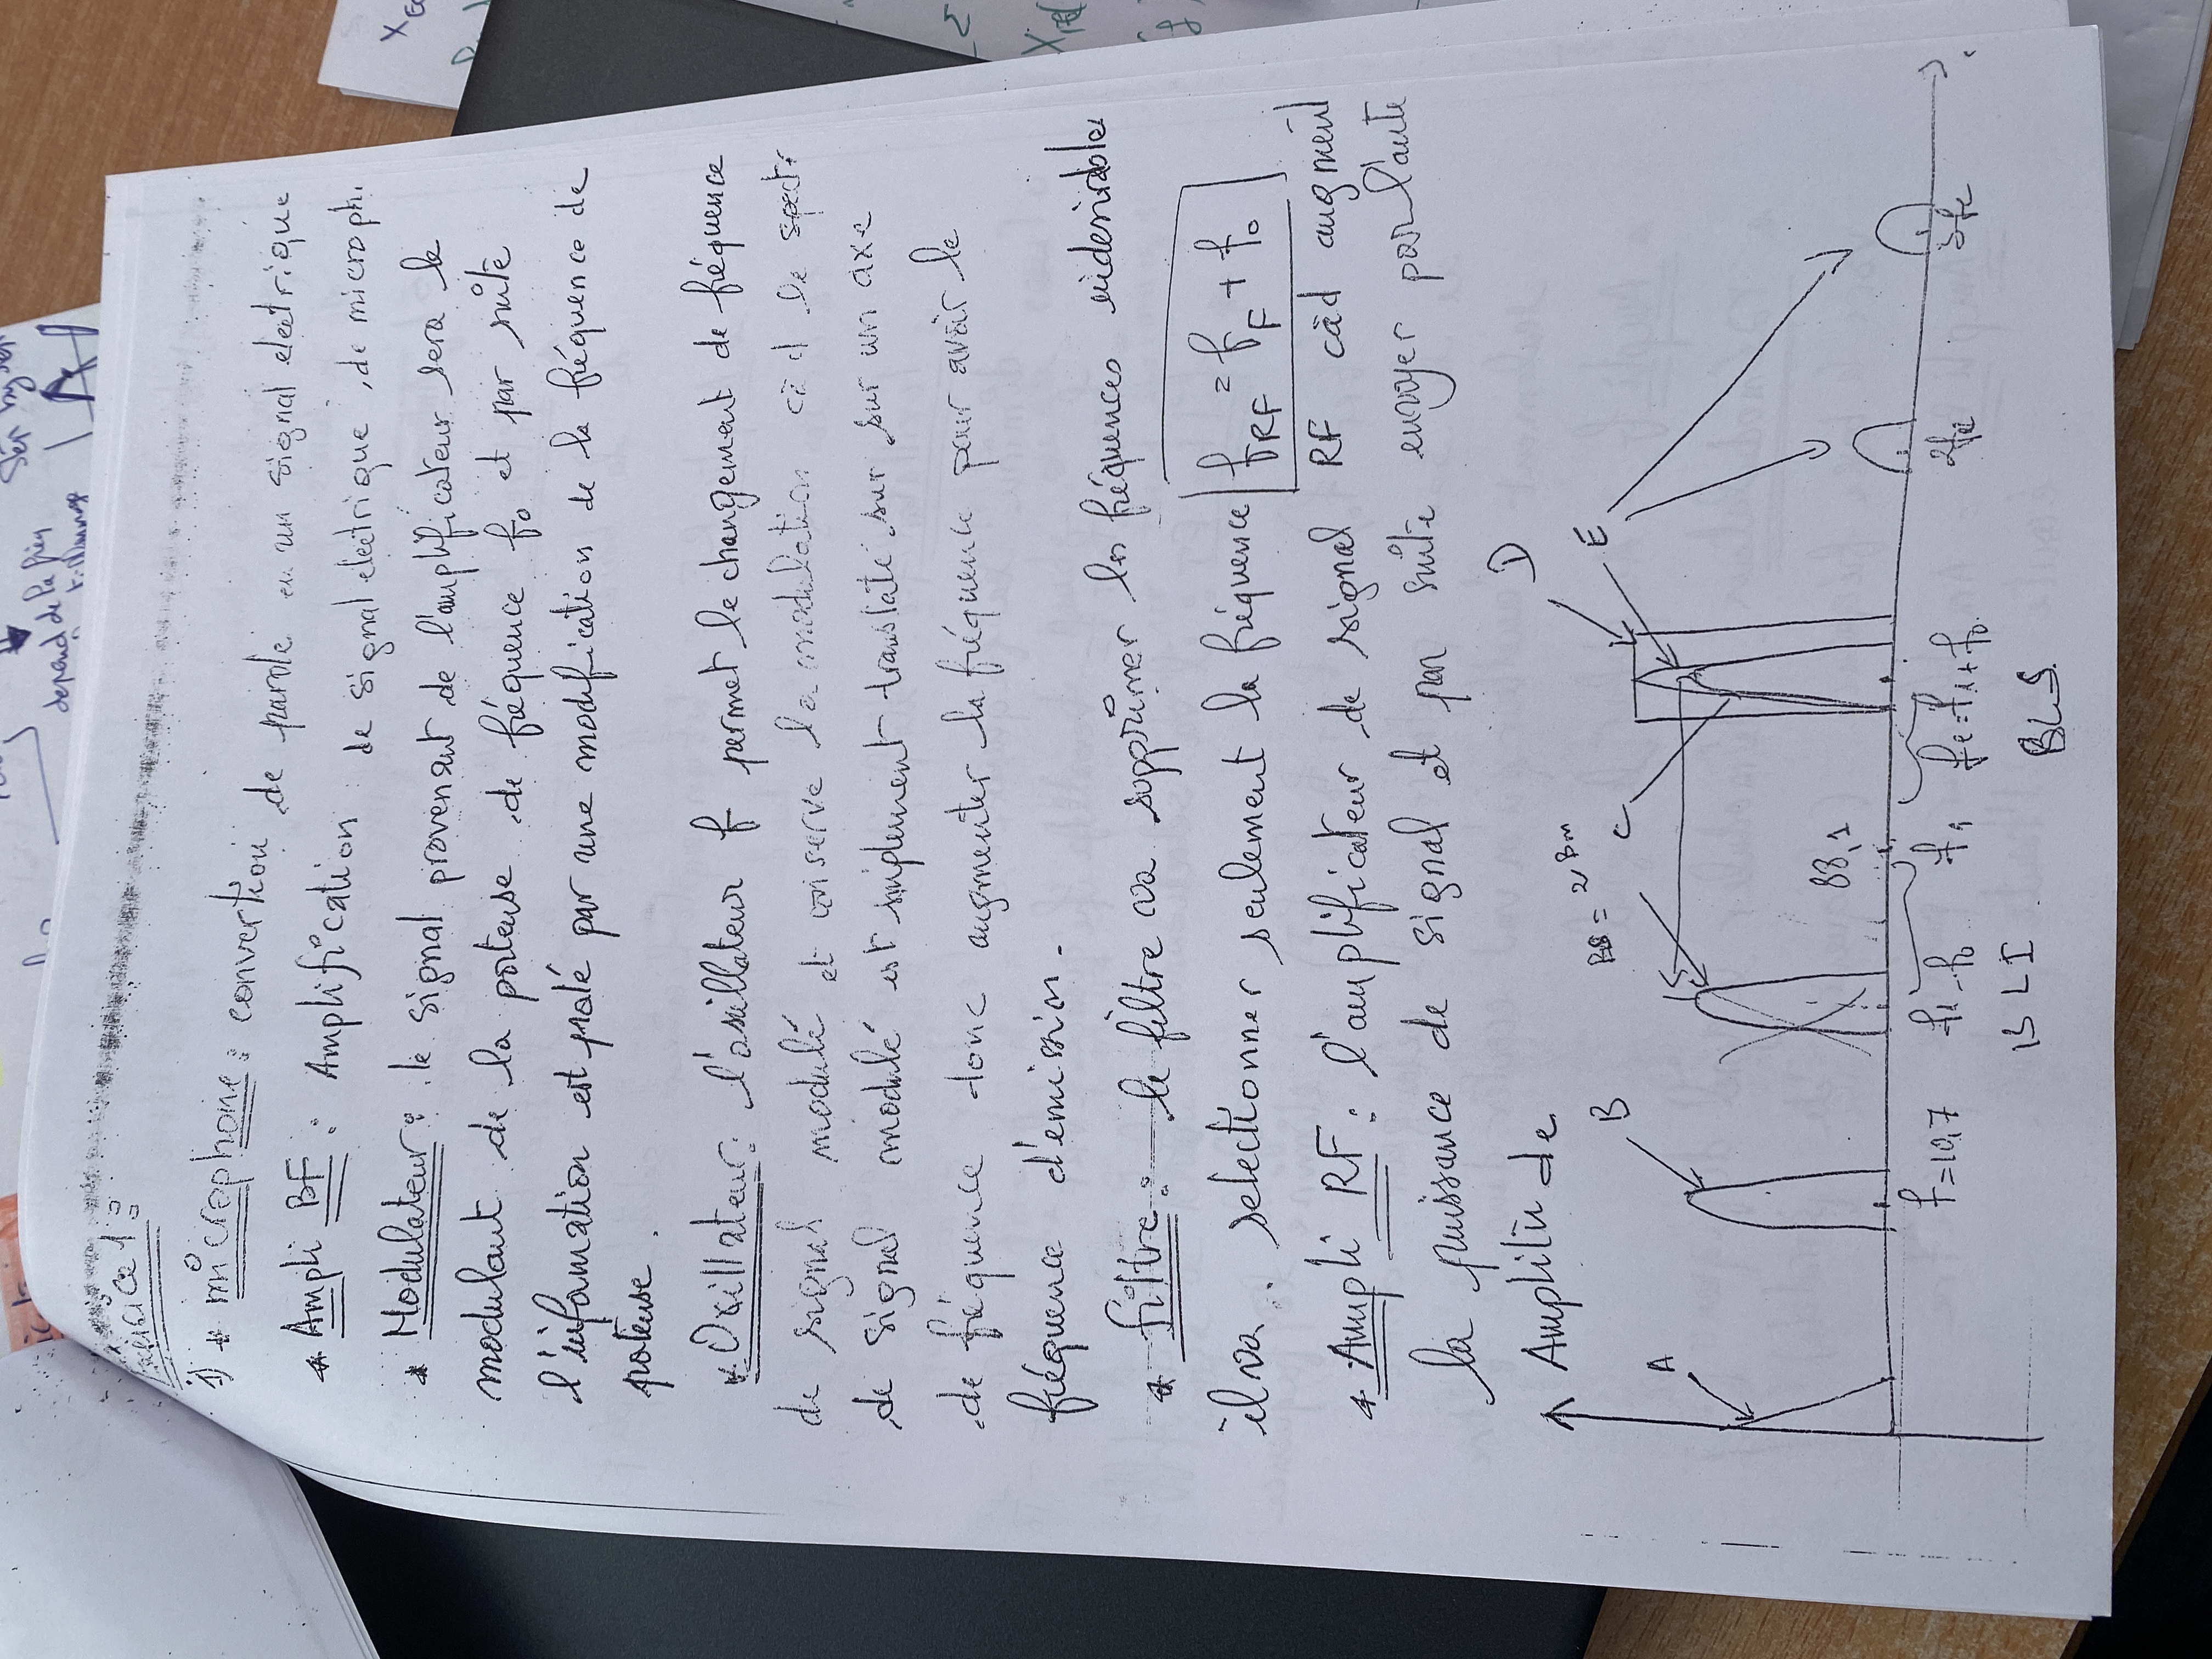 depend de la freq
Step by step
Exersice 1 :
1) * microphone : convertion de parole en un signal electrique
* Ampli BF : Amplification de signal electrique , de microph.
* Modulateur : le signal provenant de l'amplificateur sera le
modulant de la porteuse de fréquence f₀ et par suite
l'infomation est poté par une modification de la fréquence de
poteuse .
* Oxillateur : l'osillateur f permet le changement de fréquence
de signal modulé et conserve la modulation càd le spectr
de signal modulé est simplement translaté sur sur un axe
de fréquence donc augmenter la fréquence pour avoir le
fréquence d'émission .
* filtre : le filtre va supprimer les fréquences indesirable
il va selectionner seulement la fréquence f_RF = f_F + f₀
* Ampli RF : l'amplificateur de signal RF càd augment
la puissance de signal et par suite envoyer par l'ante
Amplitude
D
B
= 2Bm
C
E
A
88,1
f=10,7
f₁-f₀
f₁
fe=f₁+f₀
2fe
3fe
BLI
BLS